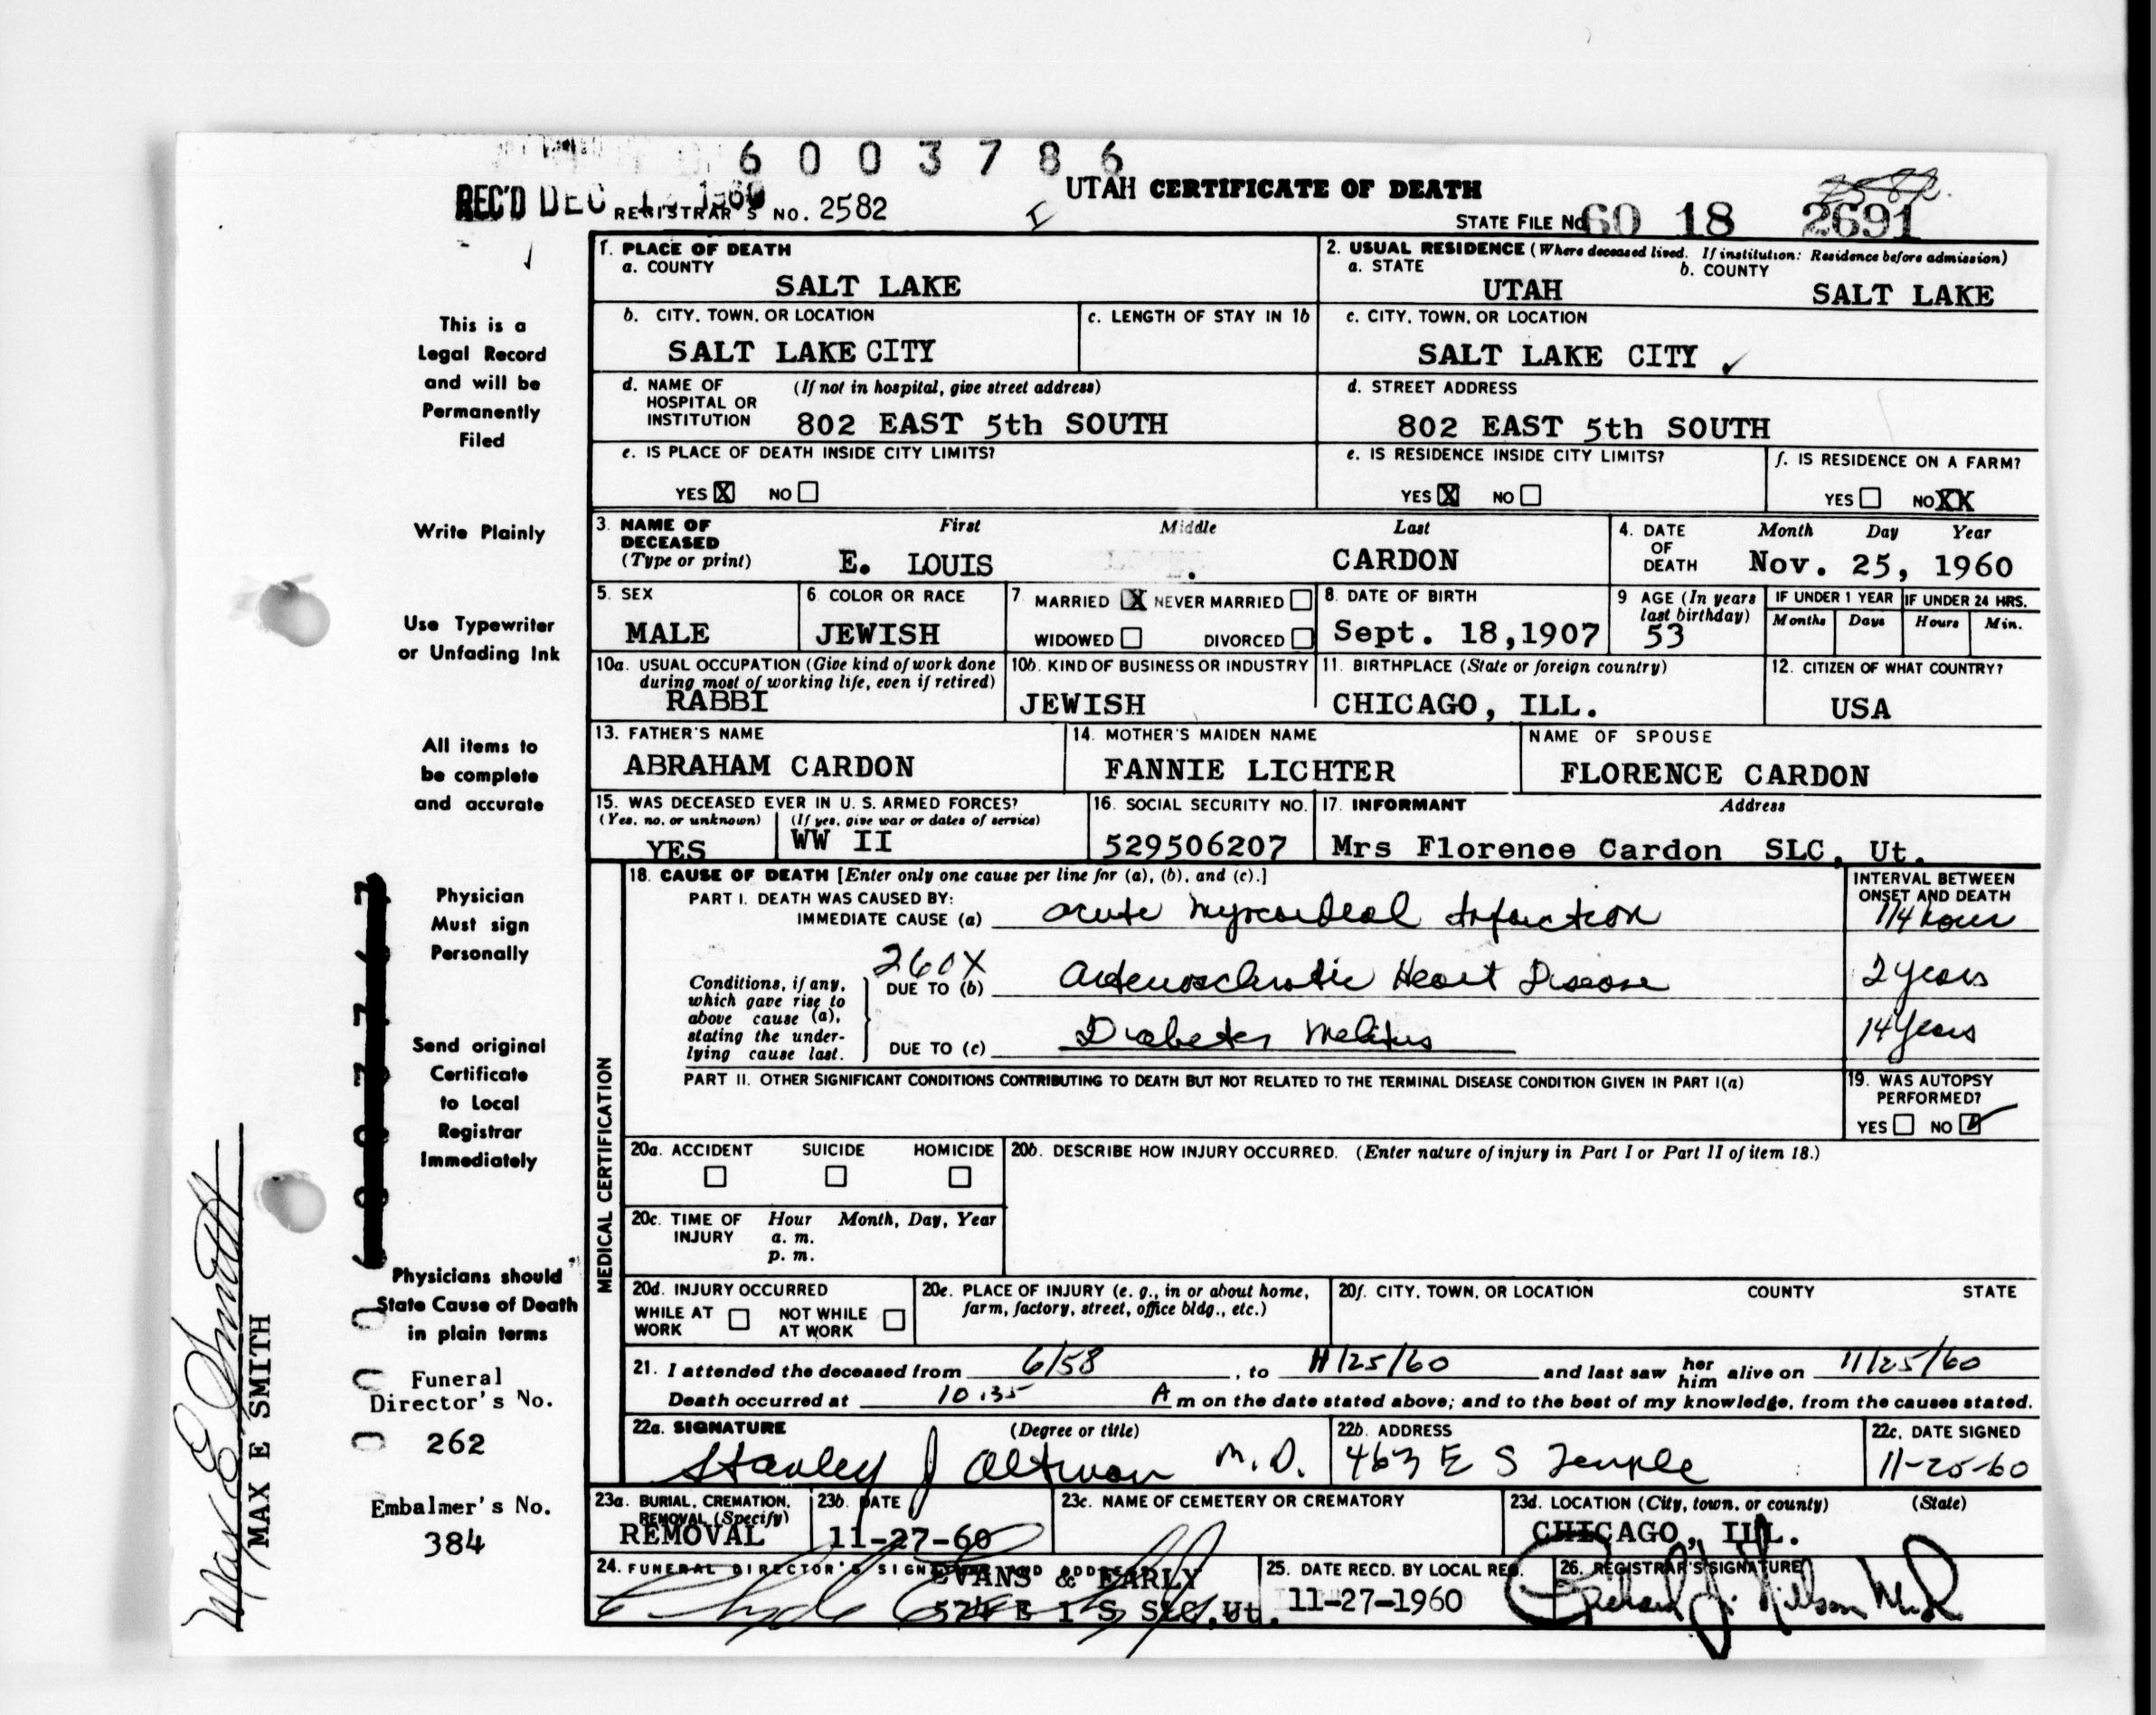 6003786
REC'D DEC 1960
REGISTRAR'S NO. 2582
UTAH CERTIFICATE OF DEATH
2582
STATE FILE No 60 18 2691
1. PLACE OF DEATH
a. COUNTY
SALT LAKE
2. USUAL RESIDENCE (Where deceased lived. If institution: Residence before admission)
a. STATE
UTAH
b. COUNTY
SALT LAKE
b. CITY, TOWN, OR LOCATION
SALT LAKE CITY
c. LENGTH OF STAY IN 1b
c. CITY, TOWN, OR LOCATION
SALT LAKE CITY ✓
d. NAME OF HOSPITAL OR INSTITUTION
(If not in hospital, give street address)
802 EAST 5th SOUTH
d. STREET ADDRESS
802 EAST 5th SOUTH
e. IS PLACE OF DEATH INSIDE CITY LIMITS?
YES X NO
e. IS RESIDENCE INSIDE CITY LIMITS?
YES X NO
f. IS RESIDENCE ON A FARM?
YES NO XX
3. NAME OF DECEASED
(Type or print)
First Middle Last
E. LOUIS CARDON
4. DATE OF DEATH
Month Day Year
Nov. 25, 1960
5. SEX
MALE
6. COLOR OR RACE
JEWISH
7. MARRIED X NEVER MARRIED
WIDOWED DIVORCED
8. DATE OF BIRTH
Sept. 18,1907
9 AGE (In years last birthday)
53
IF UNDER 1 YEAR
Months Days
IF UNDER 24 HRS.
Hours Min.
10a. USUAL OCCUPATION (Give kind of work done during most of working life, even if retired)
RABBI
10b. KIND OF BUSINESS OR INDUSTRY
JEWISH
11. BIRTHPLACE (State or foreign country)
CHICAGO, ILL.
12. CITIZEN OF WHAT COUNTRY?
USA
13. FATHER'S NAME
ABRAHAM CARDON
14. MOTHER'S MAIDEN NAME
FANNIE LICHTER
NAME OF SPOUSE
FLORENCE CARDON
15. WAS DECEASED EVER IN U. S. ARMED FORCES?
(Yes, no, or unknown)
YES
(If yes, give war or dates of service)
WW II
16. SOCIAL SECURITY NO.
529506207
17. INFORMANT Address
Mrs Florence Cardon SLC, Ut.
MEDICAL CERTIFICATION
18. CAUSE OF DEATH [Enter only one cause per line for (a), (b), and (c).]
PART I. DEATH WAS CAUSED BY:
IMMEDIATE CAUSE (a) acute myocardial infarction
INTERVAL BETWEEN ONSET AND DEATH
1/4 hour
260X
Conditions, if any, which gave rise to above cause (a), stating the underlying cause last.
DUE TO (b) arteriosclerotic Heart Disease
2 years
DUE TO (c) Diabetes Melitus
14 years
PART II. OTHER SIGNIFICANT CONDITIONS CONTRIBUTING TO DEATH BUT NOT RELATED TO THE TERMINAL DISEASE CONDITION GIVEN IN PART I(a)
19. WAS AUTOPSY PERFORMED?
YES NO ✓
20a. ACCIDENT SUICIDE HOMICIDE
20b. DESCRIBE HOW INJURY OCCURRED. (Enter nature of injury in Part I or Part II of item 18.)
20c. TIME OF INJURY
Hour Month, Day, Year
a. m.
p. m.
20d. INJURY OCCURRED
WHILE AT WORK NOT WHILE AT WORK
20e. PLACE OF INJURY (e. g., in or about home, farm, factory, street, office bldg., etc.)
20f. CITY, TOWN, OR LOCATION COUNTY STATE
21. I attended the deceased from 6/58, to 11/25/60 and last saw her him alive on 11/25/60
Death occurred at 10:35 A m on the date stated above; and to the best of my knowledge, from the causes stated.
22a. SIGNATURE (Degree or title)
Stanley J Altman M.D.
22b. ADDRESS
463 E S Temple
22c. DATE SIGNED
11-25-60
23a. BURIAL, CREMATION, REMOVAL (Specify)
REMOVAL
23b. DATE
11-27-60
23c. NAME OF CEMETERY OR CREMATORY
23d. LOCATION (City, town, or county) (State)
CHICAGO, ILL.
24. FUNERAL DIRECTOR'S SIGNATURE AND ADDRESS
EVANS & EARLY
574 E 1 S SLC,Ut.
25. DATE RECD. BY LOCAL REG.
11-27-1960
26. REGISTRAR'S SIGNATURE
This is a
Legal Record
and will be
Permanently
Filed
Write Plainly
Use Typewriter
or Unfading Ink
All items to
be complete
and accurate
Physician
Must sign
Personally
Send original
Certificate
to Local
Registrar
Immediately
Physicians should
State Cause of Death
in plain terms
Funeral
Director's No.
262
Embalmer's No.
384
Max E Smith
MAX E SMITH